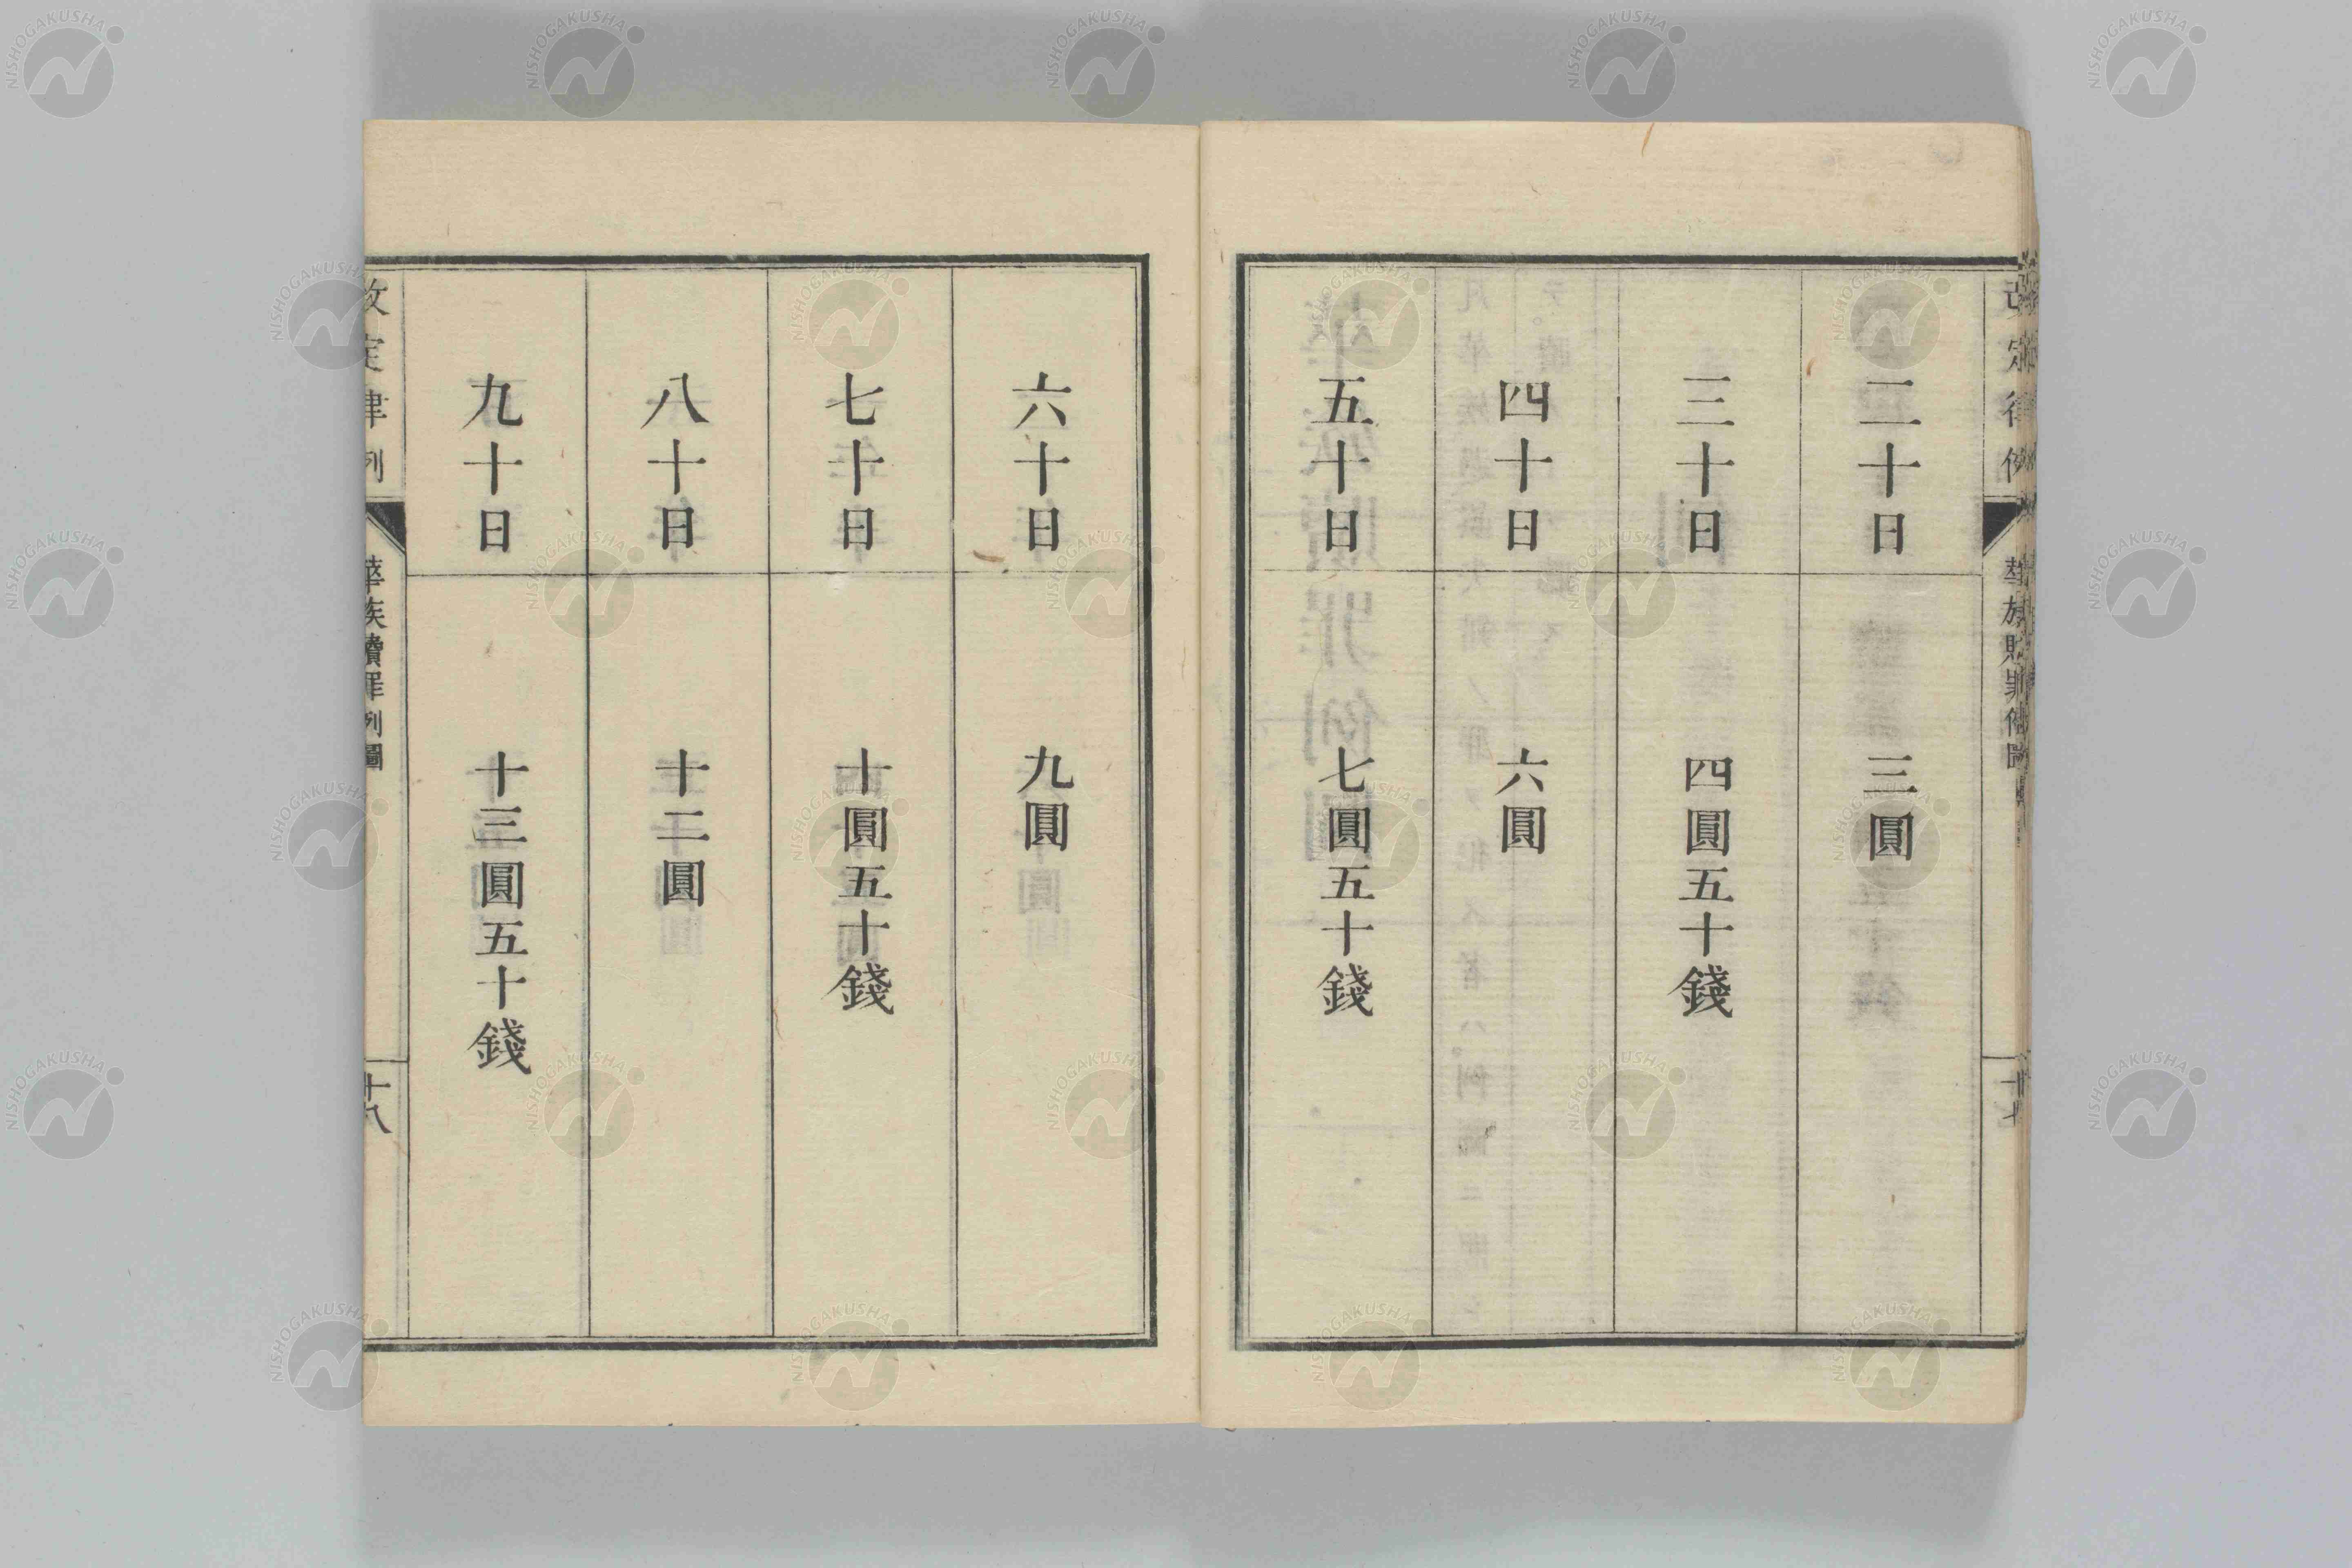 改定律例
華族贖罪例圖
十七
二十日
三圓
三十日
四圓五十錢
四十日
六圓
五十日
七圓五十錢
六十日
九圓
七十日
十圓五十錢
八十日
十二圓
九十日
十三圓五十錢
改定律例
華族贖罪例圖
十八
NISHOGAKUSHA